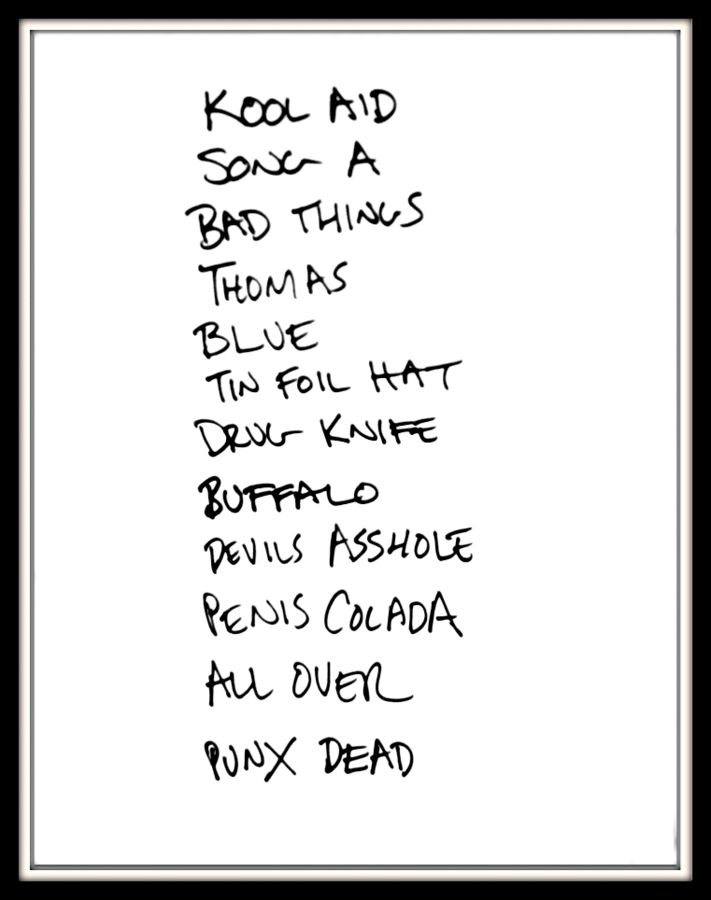 KOOL AID
SONG A
BAD THINGS
THOMAS
BLUE
TIN FOIL HAT
DRUG KNIFE
BUFFALO
DEVILS ASSHOLE
PENIS COLADA
ALL OVER
PUNX DEAD